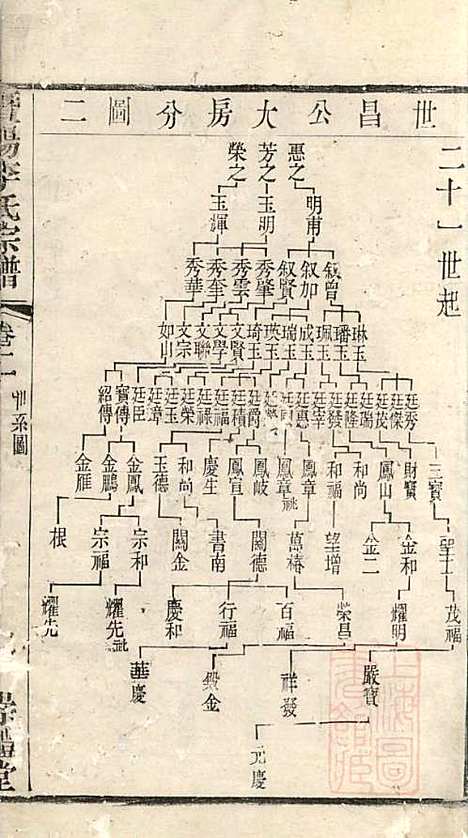 世昌公大房分圖二
二十一世起
惠之 芳之 榮之
明甫 玉明 玉輝
叙曾 叙加 叙賢 秀肇 秀雲 秀奎 秀華
琳玉 璠玉 珮玉 成玉 瑞玉 瑛玉 琦玉 文賢 文學 文聯 文宗 如山
廷秀 廷傑 廷茂 廷瑞 廷隆 廷發 廷宰 廷惠 廷爵 廷積 廷福 廷祿 廷榮 廷玉 廷璋 廷臣 寶傳 紹傳
三寶 財寶 鳳山 和尚 和福 鳳章 鳳章祧 鳳岐 鳳宣 慶生 和尚 玉德 金鳳 金鵬 金雁
聖工 金和 金二 望增 萬椿 關德 書南 關金 宗和 宗福 根
茂福 耀明 榮昌 百福 行福 慶和 耀先祧 耀先
嚴寶 祥發 毀金 華慶
元慶
李氏宗譜
卷二
世系圖
堂